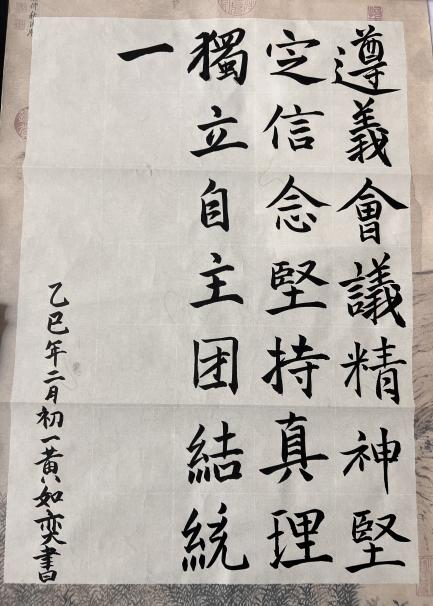 遵義會議精神堅
定信念堅持真理
獨立自主团結統
一
乙巳年二月初一黄如奕書